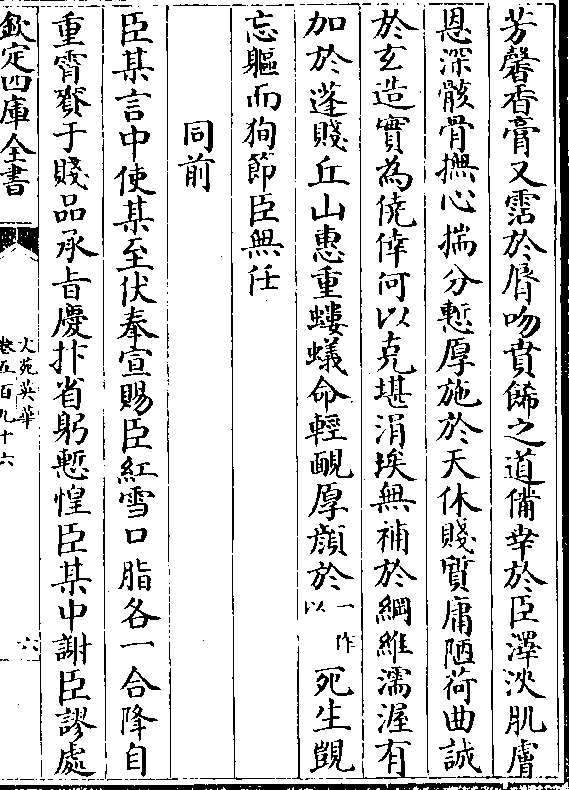 芳馨香膏又霑於唇吻賁餙之道備幸於臣澤浹肌膚
恩深骸骨撫心揣分慙厚施於天休賤質庸陋荷曲誠
於玄造實為僥倖何以克堪涓埃無補於綱維濡渥有
加於蓬賤丘山惠重螻蟻命輕靦厚顔於一作以死生覬
忘軀而狥節臣無任
同前
臣某言中使某至伏奉宣賜臣紅雪口脂各一合降自
重霄賚于賤品承旨慶抃省躬慙惶臣某中謝臣謬處
欽定四庫全書
文苑英華
卷五百九十六
六